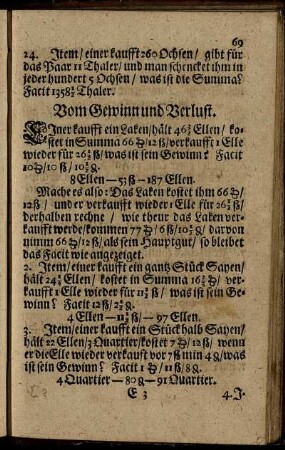 69
24. Item/ einer kaufft 260 Ochsen/ gibt für
das Paar 11 Thaler/ und man schencket ihm in
jeder hundert 5 Ochsen/ was ist die Summa?
Facit 1358½ Thaler.
Vom Gewinn und Verlust.
EIner kaufft ein Laken/ hält 46¾ Ellen/ ko-
stet in Summa 66 ₰/ 12 ß/ verkaufft 1 Elle
wieder für 26½ ß/ was ist sein Gewinn? Facit
10 ₰/ 10 ß/
8 Ellen — 53 ß — 187 Ellen.
Mache es also: Das Laken kostet ihm 66 ₰/
12 ß/ und er verkaufft wieder 1 Elle für 26½ ß/
derhalben rechne/ wie theur das Laken ver-
kaufft werde/ kommen 77 ₰/ 6 ß/ davon
nimm 66 ₰/ 12 ß/ als sein Hauptgut/ so bleibet
das Facit wie angezeiget.
2. Item/ einer kaufft ein gantz Stück Sayen/
hält 24¼ Ellen/ kostet in Summa 16½ ₰/ ver-
kaufft 1 Elle wieder für 11½ ß/ was ist sein Ge-
winn? Facit 12 ß/
4 Ellen — 11½ ß — 97 Ellen.
3. Item/ einer kaufft ein Stück halb Sayen/
hält 22 Ellen/ 3 Quartier/ kostet 7 ₰/ 12 ß/ wenn
er die Elle wieder verkauft vor 7 ß min 4 ₰/ was
ist sein Gewinn? Facit 1 ₰/ 11 ß/ 8 ₰.
4 Quartier — 80 ₰ — 91 Quartier.
E 3
4. J.